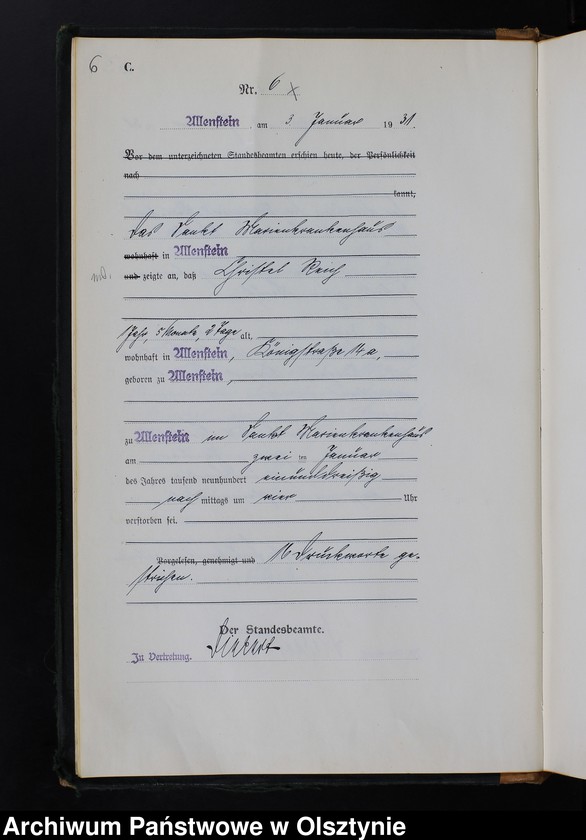 6
C.
Nr. 6
Allenstein am 3 Januar 1931.
Vor dem unterzeichneten Standesbeamten erschien heute, der Persönlichkeit
nach
kannt,
Das Sankt Marienkrankenhaus
wohnhaft in Allenstein
und zeigte an, daß Christel Reich
1 Jahr, 5 Monate, 2 Tage alt,
wohnhaft in Allenstein, Königstraße 14a,
geboren zu Allenstein,
zu Allenstein im Sankt Marienkrankenhaus
am zwei ten Januar
des Jahres tausend neunhundert einunddreißig
nach mittags um vier Uhr
verstorben sei.
Vorgelesen, genehmigt und 16 Druckworte ge-
strichen.
Der Standesbeamte.
In Vertretung.
Archiwum Państwowe w Olsztynie